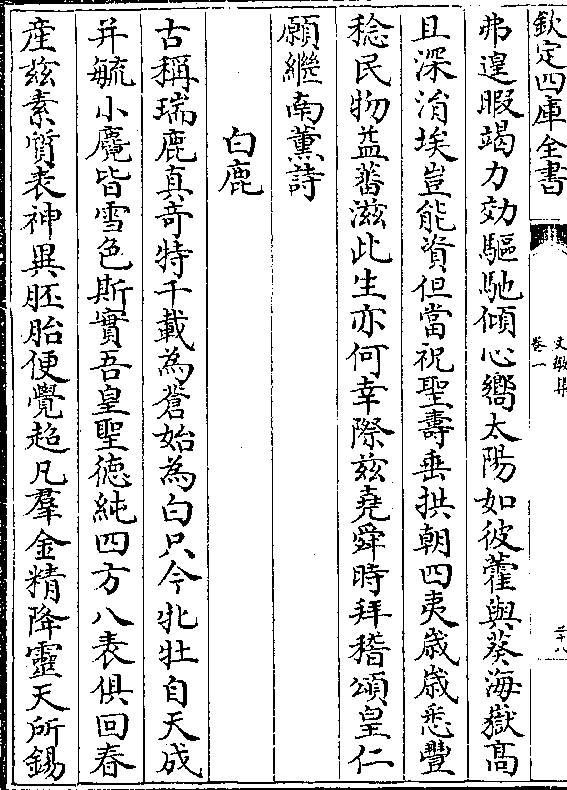 欽定四庫全書
文敏集
卷一
二十八
弗遑暇竭力効驅馳傾心嚮太陽如彼藿與葵海嶽髙
且深涓埃豈能資但當祝聖壽垂拱朝四夷歲歲悉豐
稔民物益蕃滋此生亦何幸際兹堯舜時拜稽頌皇仁
願繼南薫詩
白鹿
古稱瑞鹿真竒特千載為蒼始為白只今牝牡自天成
并毓小麑皆雪色斯實吾皇聖德純四方八表俱回春
産兹素質表神異胚胎便覺超凡羣金精降靈天所錫